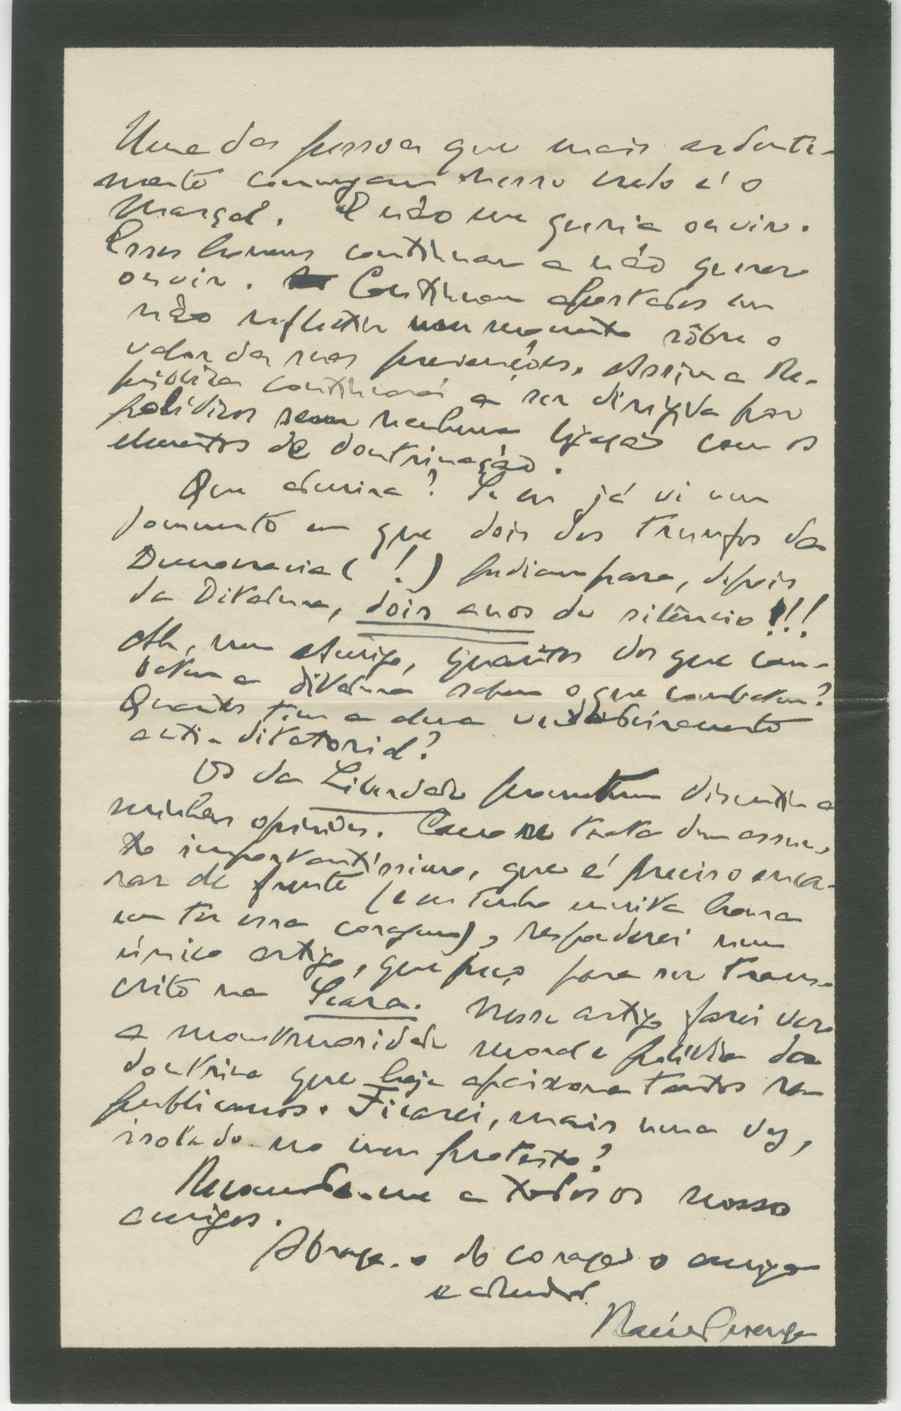 Uma das pessoas que mais ardente-
mente comungam nesse credo é o
Marçal. E não me queria ouvir.
Esses homens continuam a não querer
ouvir. Continuam apostados em
não reflectir um momento sôbre o
valor das suas prevenções. Assim a Re-
pública continuará a ser dirigida por
políticos sem nenhuma ligação com os
elementos de doutrinação.
Que admira? Se eu já vi um
documento em que dois dos trunfos da
Democracia (!) pediam para, depois
da Ditadura, dois anos de silêncio!!!
Ah, meu Amigo, quantos dos que com-
batem a ditadura sabem o que combatem?
Quantos têm a alma verdadeiramente
anti-ditatorial?
Os da Liberdade prometem discutir a
minhas opiniões. Como se trata dum assun-
to importantíssimo, que é preciso enca-
rar de frente (e eu tenho muita honra
em ter essa coragem), responderei num
único artigo, que peço para ser trans-
crito na Seara. Nesse artigo farei ver
a monstruosidade moral e política da
doutrina que hoje apaixona tantos re-
publicanos. Ficarei, mais uma vez,
isolado no meu protesto?
Recomende-me a todos os nossos
amigos.
Abraça-o do coração o amigo
e admdor.